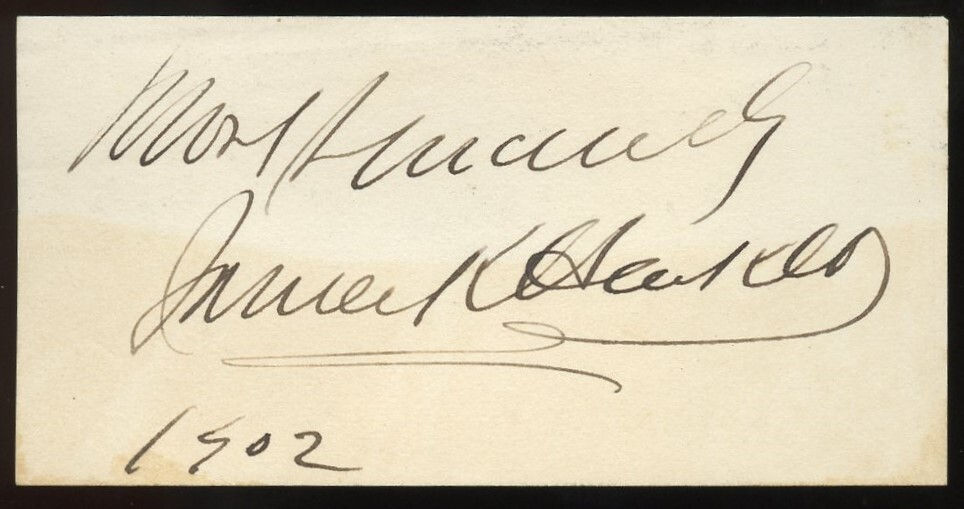 Most sincerely
James K Hackett
1902